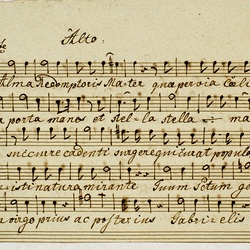 Alto.
Alma Redemptoris Ma-ter quæ pervia Cœli
porta manes et stel-la stella ma
succurre cadenti surgere qui curat populo
isti natura mirante Tuum
virgo prius ac posterius Gabri-elis